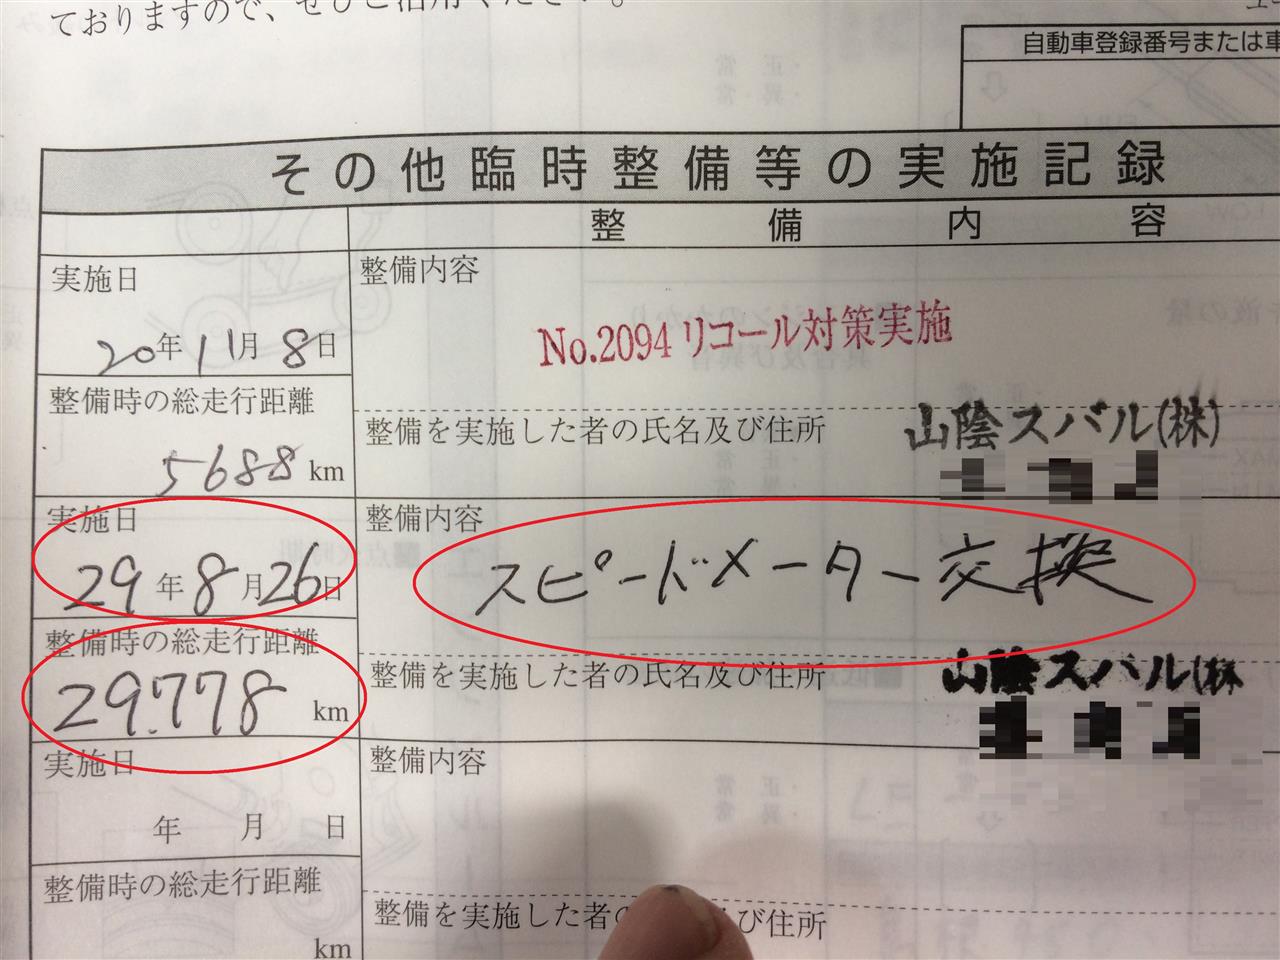 ておりますので、ぜひご活用ください。
自動車登録番号または車
その他臨時整備等の実施記録
整備内容
実施日
20年11月8日
整備時の総走行距離
5688km
整備内容
No.2094リコール対策実施
整備を実施した者の氏名及び住所
山陰スバル(株)
実施日
29年8月26日
整備時の総走行距離
29.778km
整備内容
スピードメーター交換
整備を実施した者の氏名及び住所
山陰スバル(株
実施日
年 月 日
整備時の総走行距離
km
整備内容
整備を実施した者の
び住所